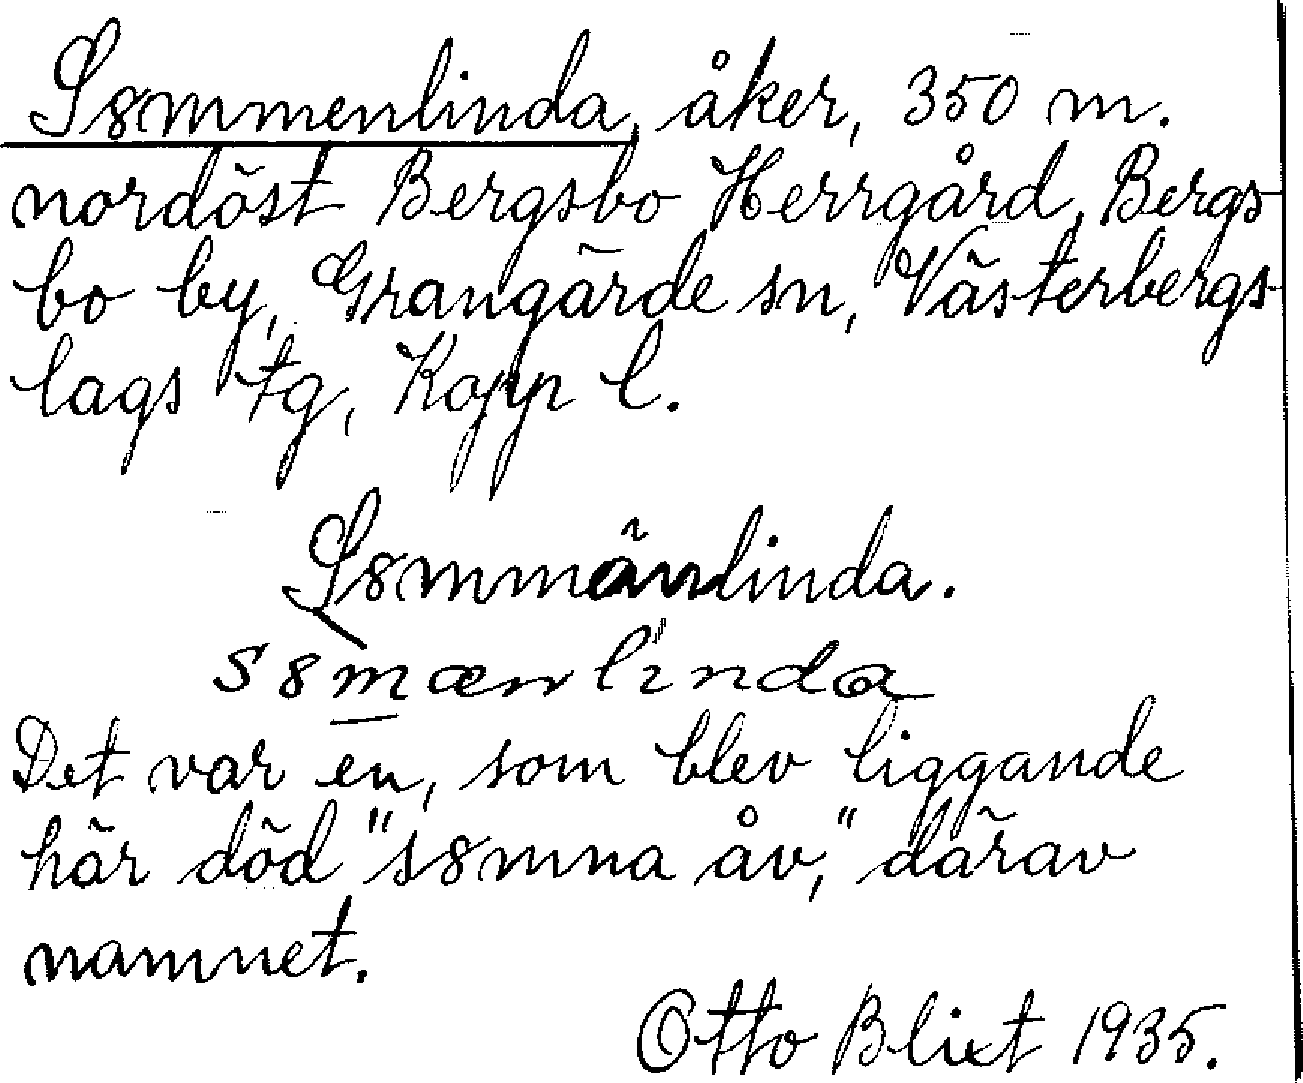 S8mmenlinda, åker, 350 m.
nordöst Bergsbo Herrgård, Bergs-
bo by, Grangärde sn, Västerbergs-
lags tg, Kopp l.
S8mmänlinda.
s8mænlinda
Det var en, som blev liggande
här död "s8mna åv," därav
namnet.
Otto Blixt 1935.